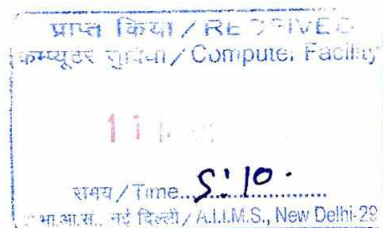 प्राप्त किया / RECEIVED
कम्प्यूटर सुविधा / Computer Facility
11
समय / Time... 5:10.
भा.आ.सं., नई दिल्ली / A.I.I.M.S., New Delhi-29